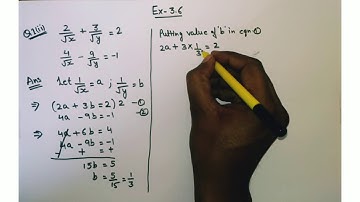 Ex-3.6
Q1(ii) 2/√x + 3/√y = 2
4/√x - 9/√y = -1
Ans Let 1/√x = a ; 1/√y = b
⇒ (2a + 3b = 2) 2 - ①
4a - 9b = -1 - ②
⇒ 4a + 6b = 4
4a - 9b = -1
- + +
15b = 5
b = 5/15 = 1/3
Putting value of 'b' in eqn ①
2a + 3 × 1/3 = 2